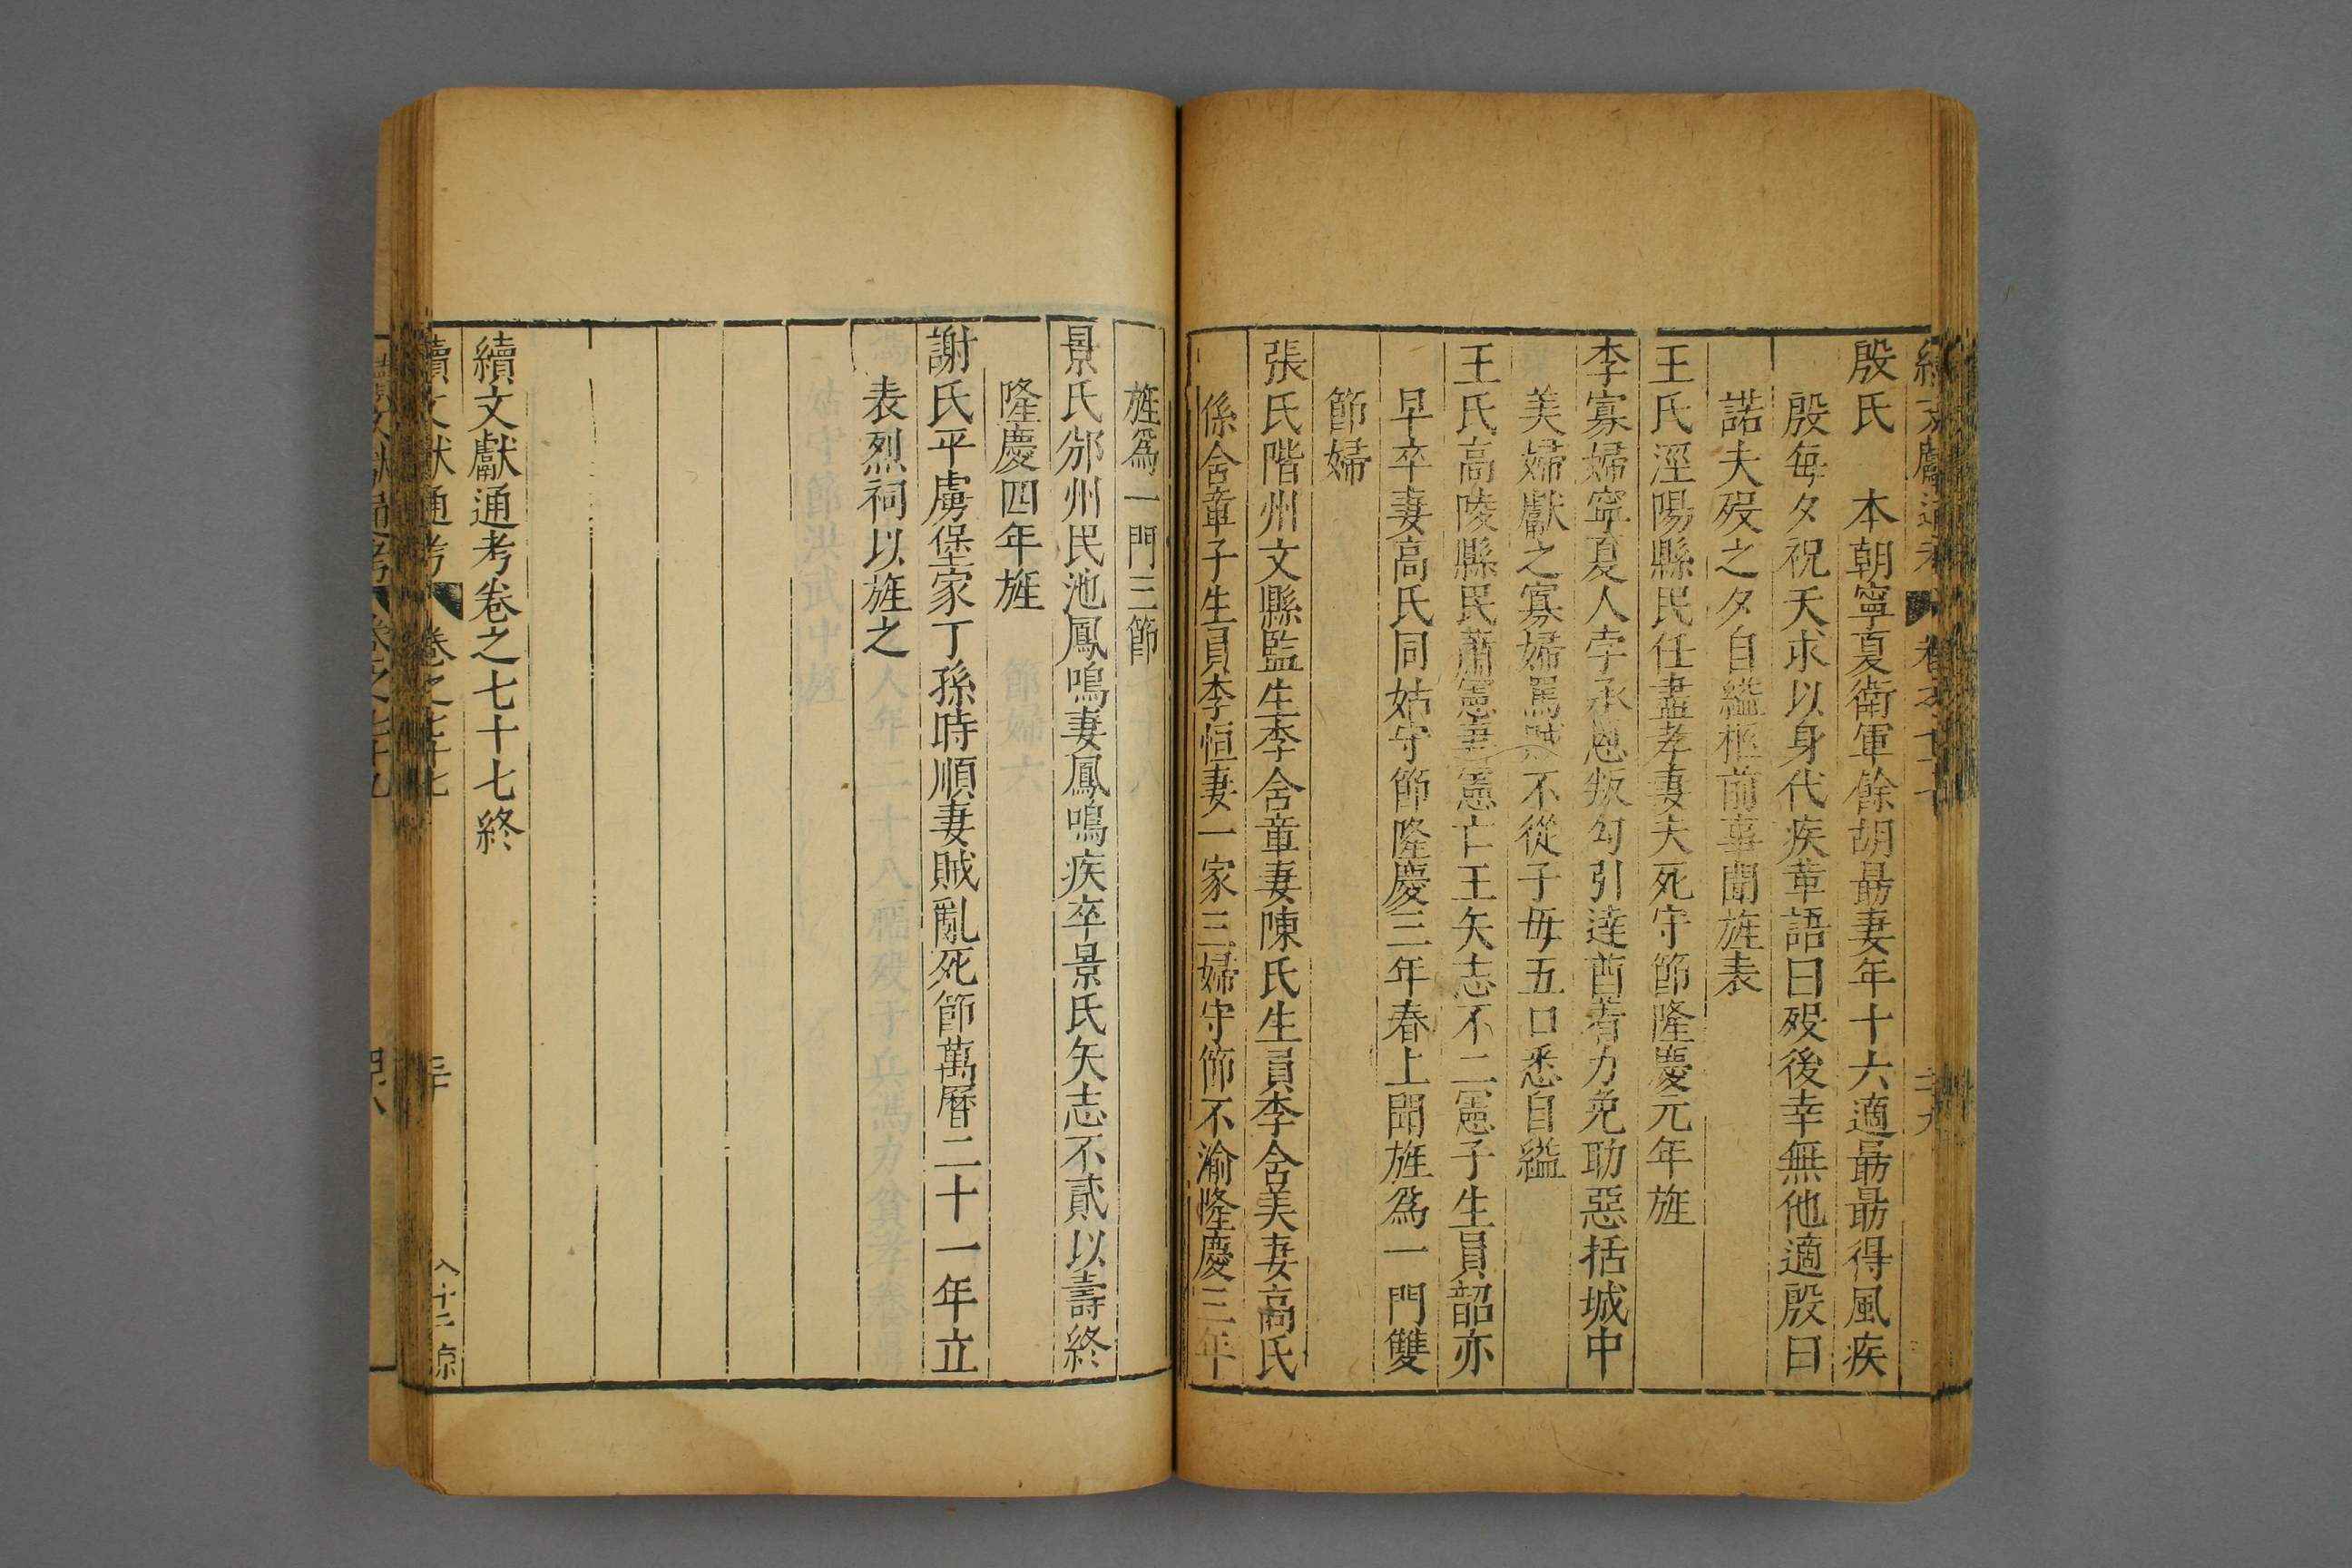 殷氏　本朝寧夏衛軍餘胡勗妻年十六適勗勗得風疾
殷每夕祝天求以身代疾革語曰歿後幸無他適殷曰
諾夫歿之夕自縊柩前事聞旌表
王氏涇陽縣民任盡孝妻夫死守節隆慶元年旌
李寡婦寧夏人孛承恩叛勾引達酋着力免助惡括城中
美婦獻之寡婦罵賊不從子毋五口悉自縊
王氏高陵縣民蕭憲妻憲亡王矢志不二憲子生員韶亦
早卒妻高氏同姑守節隆慶三年春上聞旌爲一門雙
節婦
張氏階州文縣監生李舍童妻陳氏生員李舍美妻高氏
係舍童子生員李恒妻一家三婦守節不渝隆慶三年
旌爲一門三節
景氏邠州民池鳳鳴妻鳳鳴疾卒景氏矢志不貳以壽終
隆慶四年旌
謝氏平虜堡家丁孫時順妻賊亂死節萬曆二十一年立
表烈祠以旌之
續文獻通考卷之七十七終
續文獻通考　卷之七十七　三十